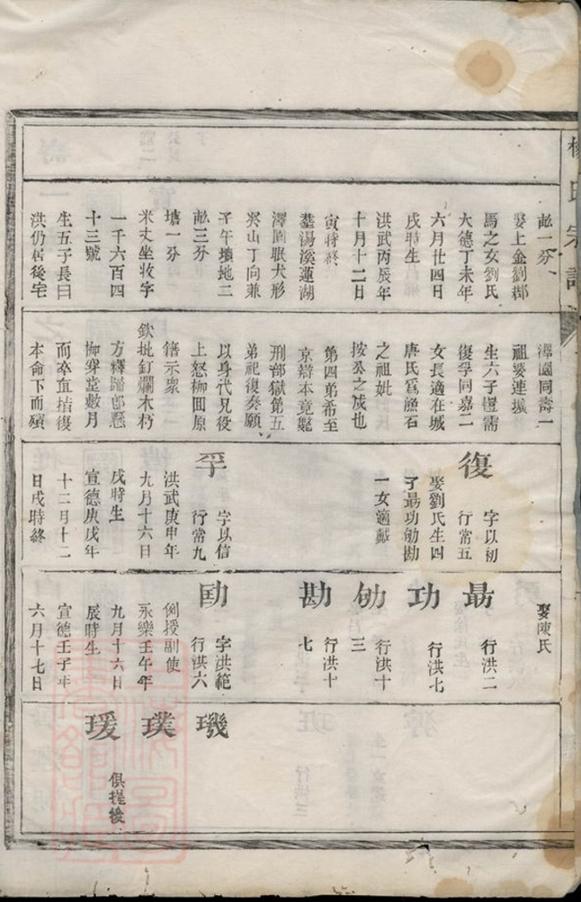 氏宗譜
畝一分
娶上金劉郡
馬之女劉氏
大德丁未年
六月廿四日
戌時生
洪武丙辰年
十月十二日
寅時終
塟湯溪蓮湖
澤園眠犬形
癸山丁向兼
子午墳地二
畝三分
塘一分
米丈坐牧字
一千六百四
十三號
生五子長曰
洪仍居後宅
澤園同壽一
祖婆連城
生六子豐需
復孚同嘉二
女長適在城
唐氏為漁石
之祖妣
按公之成也
第四弟希至
京辯本竟斃
刑部獄第五
弟祀復奏願
以身代兄役
上怒柳囬原
籍示衆
欽批釘爛木朽
方釋歸郎懸
柳穿堂數月
而卒宜搢復
本命下而殞
復
字以初
行常五
娶劉氏生四
子最功劬勘
一女適戴
孚
字以信
行常九
洪武庚申年
九月十六日
戌時生
宣德庚戌年
十二月十二
日戌時終
娶陳氏
最
行洪二
功
行洪七
劬
行洪十
三
勘
行洪十
七
勛
字洪範
行洪六
例授副使
永樂壬午年
九月十六日
辰時生
宣德壬子年
六月十七日
璣
璞
瑗
俱提後